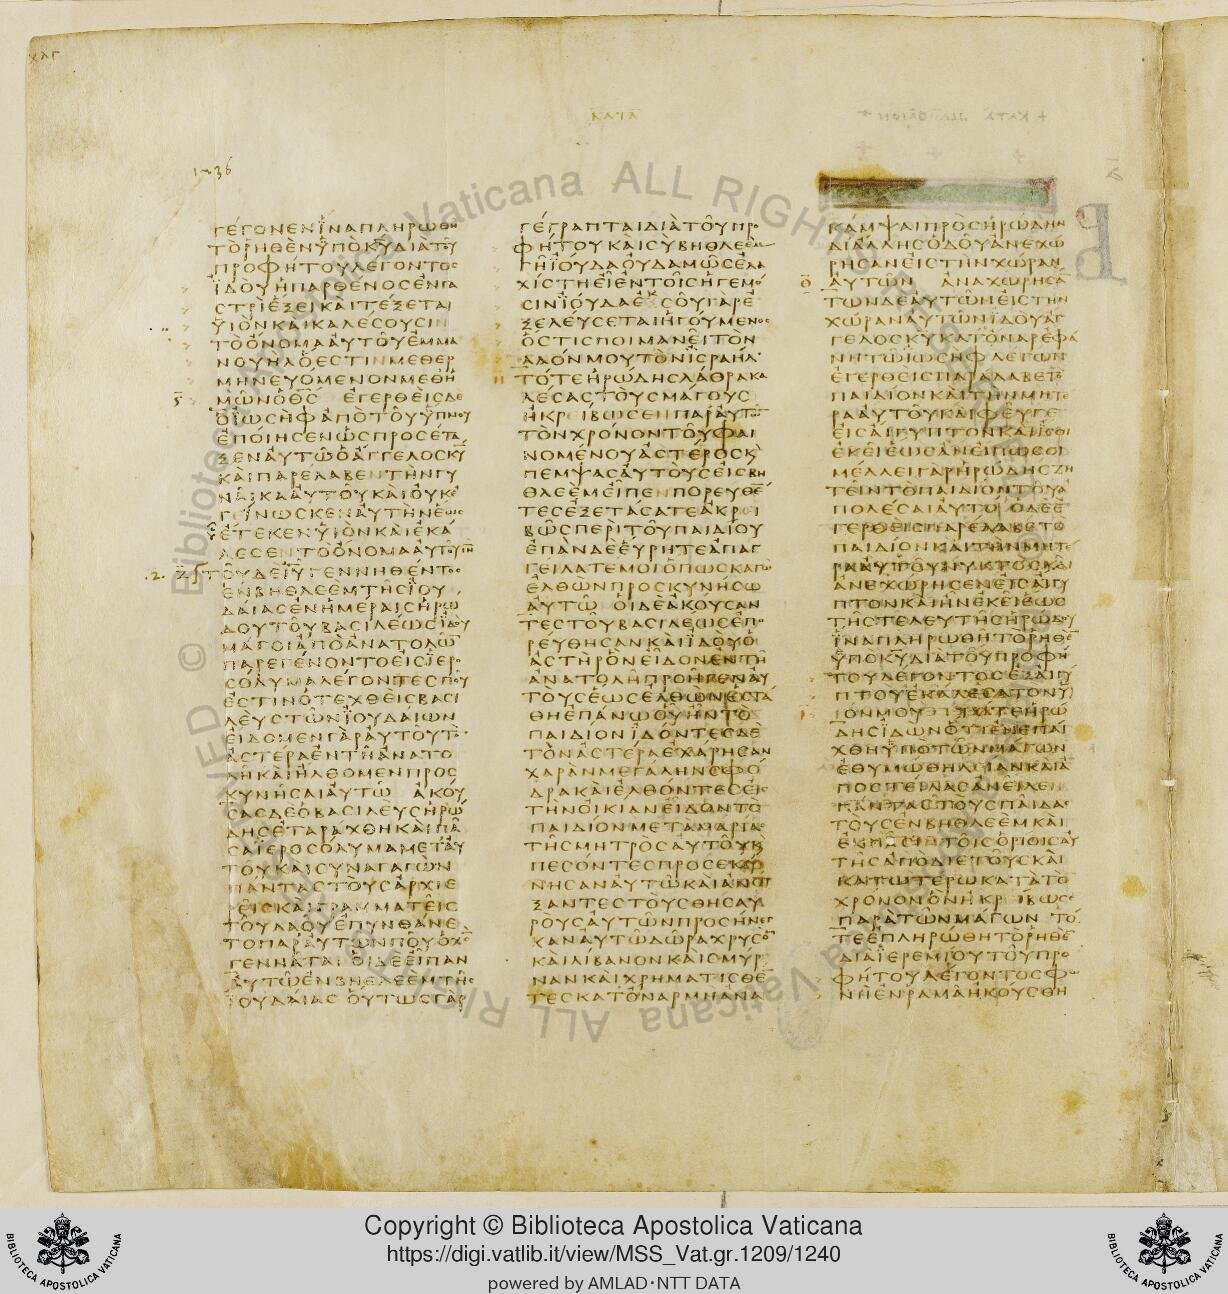 1236
ΚΑΤΑ
ΓΕΓΟΝΕΝΙΝΑΠΛΗΡΩΘΗ
ΤΟΡΗΘΕΝΥΠΟΚΥΔΙΑΤΟΥ
ΠΡΟΦΗΤΟΥΛΕΓΟΝΤΟΣ
ΙΔΟΥΗΠΑΡΘΕΝΟΣΕΝΓΑ
ΣΤΡΙΕΞΕΙΚΑΙΤΕΞΕΤΑΙ
ΥΙΟΝΚΑΙΚΑΛΕΣΟΥΣΙΝ
ΤΟΟΝΟΜΑΑΥΤΟΥΕΜΜΑ
ΝΟΥΗΛΟΕΣΤΙΝΜΕΘΕΡ
ΜΗΝΕΥΟΜΕΝΟΝΜΕΘΗ
ΜΩΝΟΘΣ ΕΓΕΡΘΕΙΣΔΕ
ΟΙΩΣΗΦΑΠΟΤΟΥΥΠΝΟΥ
ΕΠΟΙΗΣΕΝΩΣΠΡΟΣΕΤΑ
ΞΕΝΑΥΤΩΟΑΓΓΕΛΟΣΚΥ
ΚΑΙΠΑΡΕΛΑΒΕΝΤΗΝΓΥ
ΝΑΙΚΑΑΥΤΟΥΚΑΙΟΥΚΕ
ΓΕΙΝΩΣΚΕΝΑΥΤΗΝΕΩΣ
ΕΤΕΚΕΝΥΙΟΝΚΑΙΕΚΑ
ΛΕΣΕΝΤΟΟΝΟΜΑΑΥΤΟΥΙΝ
ΤΟΥΔΕΙΥΓΕΝΝΗΘΕΝΤΟΣ
ΕΝΒΗΘΛΕΕΜΤΗΣΙΟΥ
ΔΑΙΑΣΕΝΗΜΕΡΑΙΣΗΡΩ
ΔΟΥΤΟΥΒΑΣΙΛΕΩΣΙΔΟΥ
ΜΑΓΟΙΑΠΟΑΝΑΤΟΛΩ
ΠΑΡΕΓΕΝΟΝΤΟΕΙΣΙΕΡΟ
ΣΟΛΥΜΑΛΕΓΟΝΤΕΣΠΟΥ
ΕΣΤΙΝΟΤΕΧΘΕΙΣΒΑΣΙ
ΛΕΥΣΤΩΝΙΟΥΔΑΙΩΝ
ΕΙΔΟΜΕΝΓΑΡΑΥΤΟΥΤΟ
ΑΣΤΕΡΑΕΝΤΗΑΝΑΤΟ
ΛΗΚΑΙΗΛΘΟΜΕΝΠΡΟΣ
ΚΥΝΗΣΑΙΑΥΤΩ ΑΚΟΥ
ΣΑΣΔΕΟΒΑΣΙΛΕΥΣΗΡΩ
ΔΗΣΕΤΑΡΑΧΘΗΚΑΙΠΑ
ΣΑΙΕΡΟΣΟΛΥΜΑΜΕΤΑΥ
ΤΟΥΚΑΙΣΥΝΑΓΑΓΩΝ
ΠΑΝΤΑΣΤΟΥΣΑΡΧΙΕ
ΡΕΙΣΚΑΙΓΡΑΜΜΑΤΕΙΣ
ΤΟΥΛΑΟΥΕΠΥΝΘΑΝΕ
ΤΟΠΑΡΑΥΤΩΝΠΟΥΟΧΣ
ΓΕΝΝΑΤΑΙ ΟΙΔΕΕΙΠΑΝ
ΑΥΤΩΕΝΒΗΘΛΕΕΜΤΗΣ
ΙΟΥΔΑΙΑΣ ΟΥΤΩΣΓΑΡ
ΓΕΓΡΑΠΤΑΙΔΙΑΤΟΥΠΡΟ
ΦΗΤΟΥΚΑΙΣΥΒΗΘΛΕΕΜ
ΓΗΙΟΥΔΑΟΥΔΑΜΩΣΕΛΑ
ΧΙΣΤΗΕΙΕΝΤΟΙΣΗΓΕΜΟ
ΣΙΝΙΟΥΔΑΕΚΣΟΥΓΑΡΕ
ΞΕΛΕΥΣΕΤΑΙΗΓΟΥΜΕΝΟΣ
ΟΣΤΙΣΠΟΙΜΑΝΕΙΤΟΝ
ΛΑΟΝΜΟΥΤΟΝΙΣΡΑΗΛ
ΤΟΤΕΗΡΩΔΗΣΛΑΘΡΑΚΑ
ΛΕΣΑΣΤΟΥΣΜΑΓΟΥΣ
ΗΚΡΕΙΒΩΣΕΝΠΑΡΑΥΤΩ
ΤΟΝΧΡΟΝΟΝΤΟΥΦΑΙ
ΝΟΜΕΝΟΥΑΣΤΕΡΟΣΚ
ΠΕΜΨΑΣΑΥΤΟΥΣΕΙΣΒΗ
ΘΛΕΕΜΕΙΠΕΝΠΟΡΕΥΘΕ
ΤΕΣΕΞΕΤΑΣΑΤΕΑΚΡΕΙ
ΒΩΣΠΕΡΙΤΟΥΠΑΙΔΙΟΥ
ΕΠΑΝΔΕΕΥΡΗΤΕΑΠΑΓ
ΓΕΙΛΑΤΕΜΟΙΟΠΩΣΚΑΓΩ
ΕΛΘΩΝΠΡΟΣΚΥΝΗΣΩ
ΑΥΤΩ ΟΙΔΕΑΚΟΥΣΑΝ
ΤΕΣΤΟΥΒΑΣΙΛΕΩΣΕΠΟ
ΡΕΥΘΗΣΑΝΚΑΙΙΔΟΥΟ
ΑΣΤΗΡΟΝΕΙΔΟΝΕΝΤΗ
ΑΝΑΤΟΛΗΠΡΟΗΓΕΝΑΥ
ΤΟΥΣΕΩΣΕΛΘΩΝΕΣΤΑ
ΘΗΕΠΑΝΩΟΥΗΝΤΟ
ΠΑΙΔΙΟΝΙΔΟΝΤΕΣΔΕ
ΤΟΝΑΣΤΕΡΑΕΧΑΡΗΣΑΝ
ΧΑΡΑΝΜΕΓΑΛΗΝΣΦΟ
ΔΡΑΚΑΙΕΛΘΟΝΤΕΣΕΙΣ
ΤΗΝΟΙΚΙΑΝΕΙΔΟΝΤΟ
ΠΑΙΔΙΟΝΜΕΤΑΜΑΡΙΑΣ
ΤΗΣΜΗΤΡΟΣΑΥΤΟΥΚ
ΠΕΣΟΝΤΕΣΠΡΟΣΕΚΥ
ΝΗΣΑΝΑΥΤΩΚΑΙΑΝΟΙ
ΞΑΝΤΕΣΤΟΥΣΘΗΣΑΥ
ΡΟΥΣΑΥΤΩΝΠΡΟΣΗΝΕΓ
ΚΑΝΑΥΤΩΔΩΡΑΧΡΥΣΟ
ΚΑΙΛΙΒΑΝΟΝΚΑΙΣΜΥΡ
ΝΑΝΚΑΙΧΡΗΜΑΤΙΣΘΕ
ΤΕΣΚΑΤΟΝΑΡΜΗΑΝΑ
ΚΑΜΨΑΙΠΡΟΣΗΡΩΔΗΝ
ΔΙΑΛΛΗΣΟΔΟΥΑΝΕΧΩ
ΡΗΣΑΝΕΙΣΤΗΝΧΩΡΑΝ
ΑΥΤΩΝ ΑΝΑΧΩΡΗΣΑ
ΤΩΝΔΕΑΥΤΩΝΕΙΣΤΗΝ
ΧΩΡΑΝΑΥΤΩΝΙΔΟΥΑΓ
ΓΕΛΟΣΚΥΚΑΤΟΝΑΡΕΦΑ
ΝΗΤΩΙΩΣΗΦΛΕΓΩΝ
ΕΓΕΡΘΕΙΣΠΑΡΑΛΑΒΕΤΟ
ΠΑΙΔΙΟΝΚΑΙΤΗΝΜΗΤΕ
ΡΑΑΥΤΟΥΚΑΙΦΕΥΓΕ
ΕΙΣΑΙΓΥΠΤΟΝΚΑΙΙΣΘΙ
ΕΚΕΙΕΩΣΑΝΕΙΠΩΣΟΙ
ΜΕΛΛΕΙΓΑΡΗΡΩΔΗΣΖΗ
ΤΕΙΝΤΟΠΑΙΔΙΟΝΤΟΥΑ
ΠΟΛΕΣΑΙΑΥΤΟ ΟΔΕΕ
ΓΕΡΘΕΙΣΠΑΡΕΛΑΒΕΤΟ
ΠΑΙΔΙΟΝΚΑΙΤΗΝΜΗΤΕ
ΡΑΑΥΤΟΥΝΥΚΤΟΣΚΑΙ
ΑΝΕΧΩΡΗΣΕΝΕΙΣΑΙΓΥ
ΠΤΟΝΚΑΙΗΝΕΚΕΙΕΩΣ
ΤΗΣΤΕΛΕΥΤΗΣΗΡΩΔΟΥ
ΙΝΑΠΛΗΡΩΘΗΤΟΡΗΘΕ
ΥΠΟΚΥΔΙΑΤΟΥΠΡΟΦΗ
ΤΟΥΛΕΓΟΝΤΟΣΕΞΑΙΓΥ
ΠΤΟΥΕΚΑΛΕΣΑΤΟΝΥ
ΙΟΝΜΟΥ ΤΟΤΕΗΡΩ
ΔΗΣΙΔΩΝΟΤΙΕΝΕΠΑΙ
ΧΘΗΥΠΟΤΩΝΜΑΓΩΝ
ΕΘΥΜΩΘΗΛΙΑΝΚΑΙΑ
ΠΟΣΤΕΙΛΑΣΑΝΕΙΛΕΝ
ΠΑΝΤΑΣΤΟΥΣΠΑΙΔΑΣ
ΤΟΥΣΕΝΒΗΘΛΕΕΜΚΑΙ
ΕΝΠΑΣΙΝΤΟΙΣΟΡΙΟΙΣΑΥ
ΤΗΣΑΠΟΔΙΕΤΟΥΣΚΑΙ
ΚΑΤΩΤΕΡΩΚΑΤΑΤΟ
ΧΡΟΝΟΝΟΝΗΚΡΙΒΩΣΕ
ΠΑΡΑΤΩΝΜΑΓΩΝ ΤΟ
ΤΕΕΠΛΗΡΩΘΗΤΟΡΗΘΕ
ΔΙΑΙΕΡΕΜΙΟΥΤΟΥΠΡΟ
ΦΗΤΟΥΛΕΓΟΝΤΟΣΦΩ
ΝΗΕΝΡΑΜΑΗΚΟΥΣΘΗ
Copyright © Biblioteca Apostolica Vaticana
https://digi.vatlib.it/view/MSS_Vat.gr.1209/1240
powered by AMLAD·NTT DATA
BIBLIOTECA APOSTOLICA VATICANA
BIBLIOTECA APOSTOLICA VATICANA